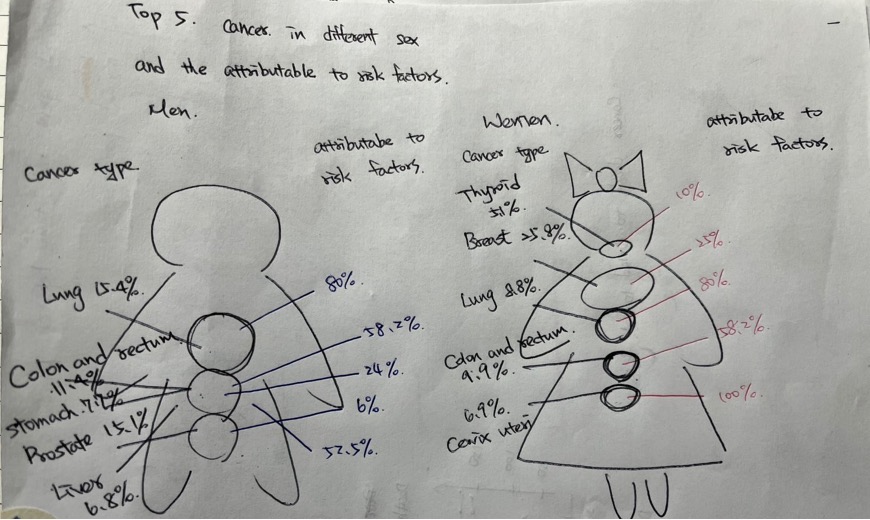 Top 5. Cancer. in different sex
and the attributable to risk factors.
Men.
Cancer type
attributabe to
risk factors.
Lung 15.4%
Colon and rectum
11.4%
stomach 7.7%
Prostate 15.1%
Liver
6.8%
80%.
58.2%.
24%.
6%.
52.5%.
Women.
Cancer type
attributabe to
risk factors.
Thyroid
5.1%
Breast 25.8%.
Lung 8.8%
Colon and rectum.
9.9%
6.9%
Cervix uteri
10%.
25%.
80%.
58.2%.
100%.